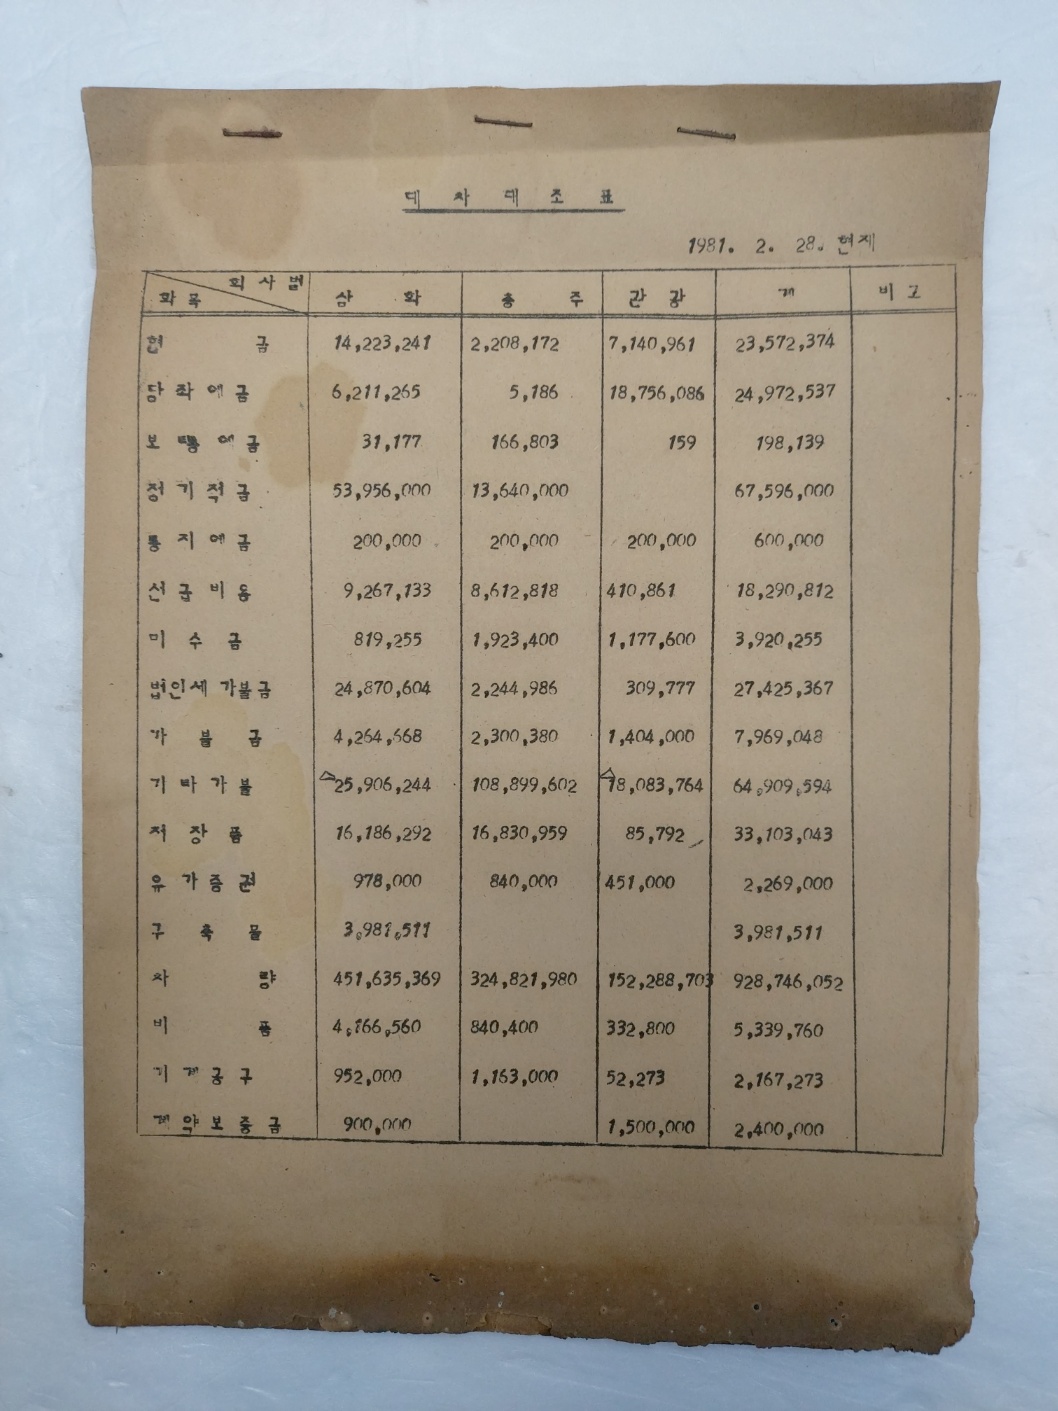 대 차 대 조 표
1981. 2. 28. 현재
회사별
과목 삼 화 충 주 관 광 계 비 고
현 금 14,223,241 2,208,172 7,140,961 23,572,374
당 좌 예 금 6,211,265 5,186 18,756,086 24,972,537
보 통 예 금 31,177 166,803 159 198,139
정 기 적 금 53,956,000 13,640,000 67,596,000
통 지 예 금 200,000 200,000 200,000 600,000
선 급 비 용 9,267,133 8,612,818 410,861 18,290,812
미 수 금 819,255 1,923,400 1,177,600 3,920,255
법인세 가불금 24,870,604 2,244,986 309,777 27,425,367
가 불 금 4,264,668 2,300,380 1,404,000 7,969,048
기 타 가 불 △25,906,244 108,899,602 △18,083,764 64,909,594
저 장 품 16,186,292 16,830,959 85,792 33,103,043
유 가 증 권 978,000 840,000 451,000 2,269,000
구 축 물 3,981,511 3,981,511
차 량 451,635,369 324,821,980 152,288,703 928,746,052
비 품 4,166,560 840,400 332,800 5,339,760
기 계 공 구 952,000 1,163,000 52,273 2,167,273
계 약 보 증 금 900,000 1,500,000 2,400,000